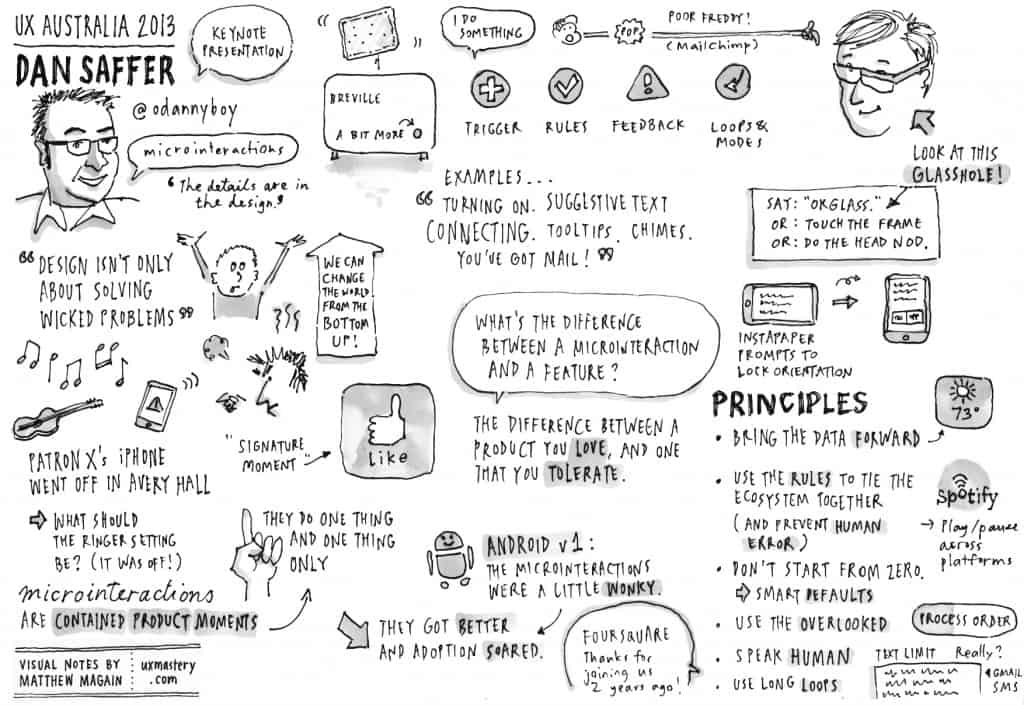 UX AUSTRALIA 2013
DAN SAFFER
KEYNOTE
PRESENTATION
@odannyboy
microinteractions
"The details are in
the design."
BREVILLE
A BIT MORE
I DO
SOMETHING
POP
POOR FREDDY!
(MailChimp)
TRIGGER
RULES
FEEDBACK
LOOPS &
MODES
LOOK AT THIS
GLASSHOLE!
SAY: "OKGLASS."
OR: TOUCH THE FRAME
OR: DO THE HEAD NOD.
EXAMPLES...
"TURNING ON. SUGGESTIVE TEXT
CONNECTING. TOOLTIPS. CHIMES.
YOU'VE GOT MAIL!"
"DESIGN ISN'T ONLY
ABOUT SOLVING
WICKED PROBLEMS"
WE CAN
CHANGE
THE WORLD
FROM THE
BOTTOM
UP!
WHAT'S THE DIFFERENCE
BETWEEN A MICROINTERACTION
AND A FEATURE?
THE DIFFERENCE BETWEEN A
PRODUCT YOU LOVE, AND ONE
THAT YOU TOLERATE.
INSTAPAPER
PROMPTS TO
LOCK ORIENTATION
PATRON X's iPHONE
WENT OFF IN AVERY HALL
WHAT SHOULD
THE RINGER SETTING
BE? (IT WAS OFF!)
"SIGNATURE
MOMENT"
Like
microinteractions
ARE CONTAINED PRODUCT MOMENTS
THEY DO ONE THING
AND ONE THING
ONLY
ANDROID v1:
THE MICROINTERACTIONS
WERE A LITTLE WONKY.
THEY GOT BETTER
AND ADOPTION SOARED.
FOURSQUARE
Thanks for
joining us
2 years ago!
PRINCIPLES
• BRING THE DATA FORWARD
73°
• USE THE RULES TO TIE THE
ECOSYSTEM TOGETHER
(AND PREVENT HUMAN
ERROR)
Spotify
→ Play/pause
across
platforms
• DON'T START FROM ZERO.
⇒ SMART DEFAULTS
• USE THE OVERLOOKED
PROCESS ORDER
• SPEAK HUMAN
• USE LONG LOOPS
TEXT LIMIT Really?
GMAIL
SMS
VISUAL NOTES BY
MATTHEW MAGAIN
uxmastery
.com